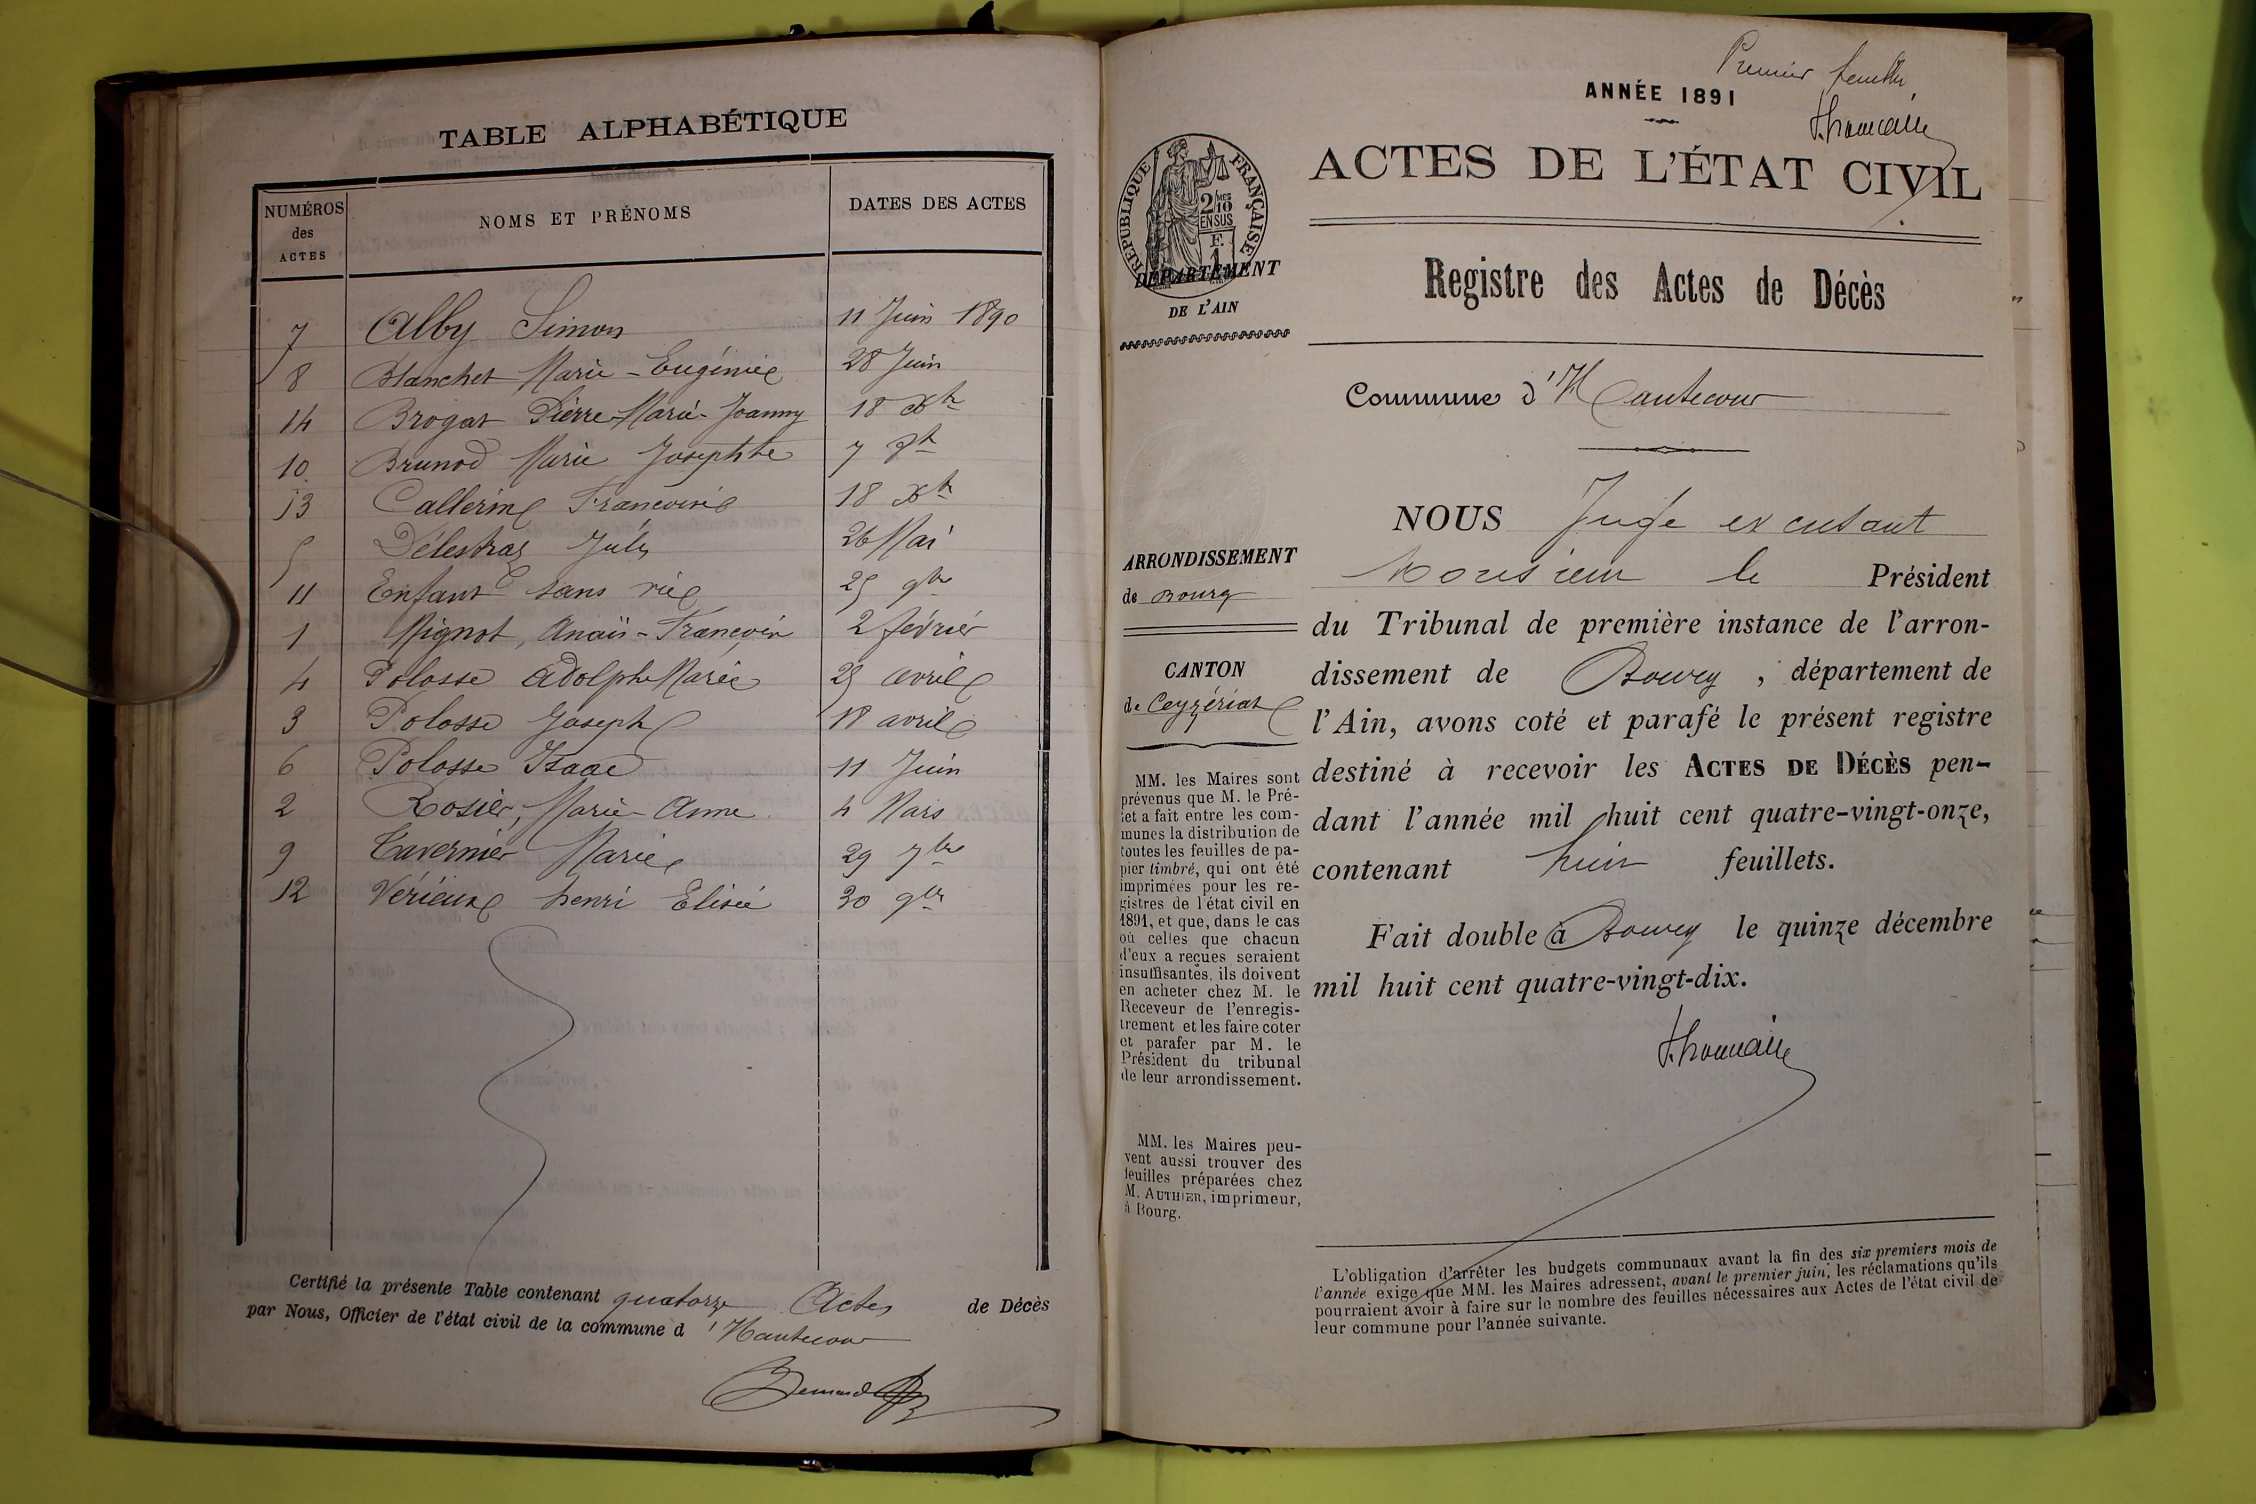 TABLE ALPHABÉTIQUE
NUMÉROS des ACTES
NOMS ET PRÉNOMS
DATES DES ACTES
7 Alby Simon 11 Juin 1890
8 Blanchet Marie-Eugénie 28 Juin
14 Brogat Pierre-Marie-Joanny 18 Xbre
10 Brunod Marie Josephte 7 8bre
13 Callerine Francoise 18 Xbre
5 Délestraz Jules 26 Mai
11 Enfant sans vie 25 9bre
1 Mignot, Anaïs-Francoise 2 février
4 Polosse Adolphe Marie 25 avril
3 Polosse Joseph 18 avril
6 Polosse Isaac 11 Juin
2 Rosier, Marie-Anne 4 Mars
9 Tavernier Marie 29 7bre
12 Vérieux henri Elisée 30 9bre
Certifié la présente Table contenant quatorze Actes de Décès
par Nous, Officier de l'état civil de la commune d'Hautecour
Premier feuillet
ANNÉE 1891
ACTES DE L'ÉTAT CIVIL
RÉPUBLIQUE FRANÇAISE
2/10MES
EN SUS
F.
1
DÉPARTEMENT
DE L'AIN
Registre des Actes de Décès
Commune d'Hautecour
ARRONDISSEMENT
de Bourg
CANTON
de Ceyzériat
MM. les Maires sont
prévenus que M. le Pré-
fet a fait entre les com-
munes la distribution de
toutes les feuilles de pa-
pier timbré, qui ont été
imprimées pour les re-
gistres de l'état civil en
1891, et que, dans le cas
où celles que chacun
d'eux a reçues seraient
insuffisantes, ils doivent
en acheter chez M. le
Receveur de l'enregis-
trement et les faire coter
et parafer par M. le
Président du tribunal
de leur arrondissement.
MM. les Maires peu-
vent aussi trouver des
feuilles préparées chez
M. AUTHIER, imprimeur,
à Bourg.
NOUS Juge excusant
Monsieur le Président
du Tribunal de première instance de l'arron-
dissement de Bourg, département de
l'Ain, avons coté et parafé le présent registre
destiné à recevoir les ACTES DE DÉCÈS pen-
dant l'année mil huit cent quatre-vingt-onze,
contenant huit feuillets.
Fait double à Bourg le quinze décembre
mil huit cent quatre-vingt-dix.
L'obligation d'arrêter les budgets communaux avant la fin des six premiers mois de
l'année exige que MM. les Maires adressent, avant le premier juin, les réclamations qu'ils
pourraient avoir à faire sur le nombre des feuilles nécessaires aux Actes de l'état civil de
leur commune pour l'année suivante.